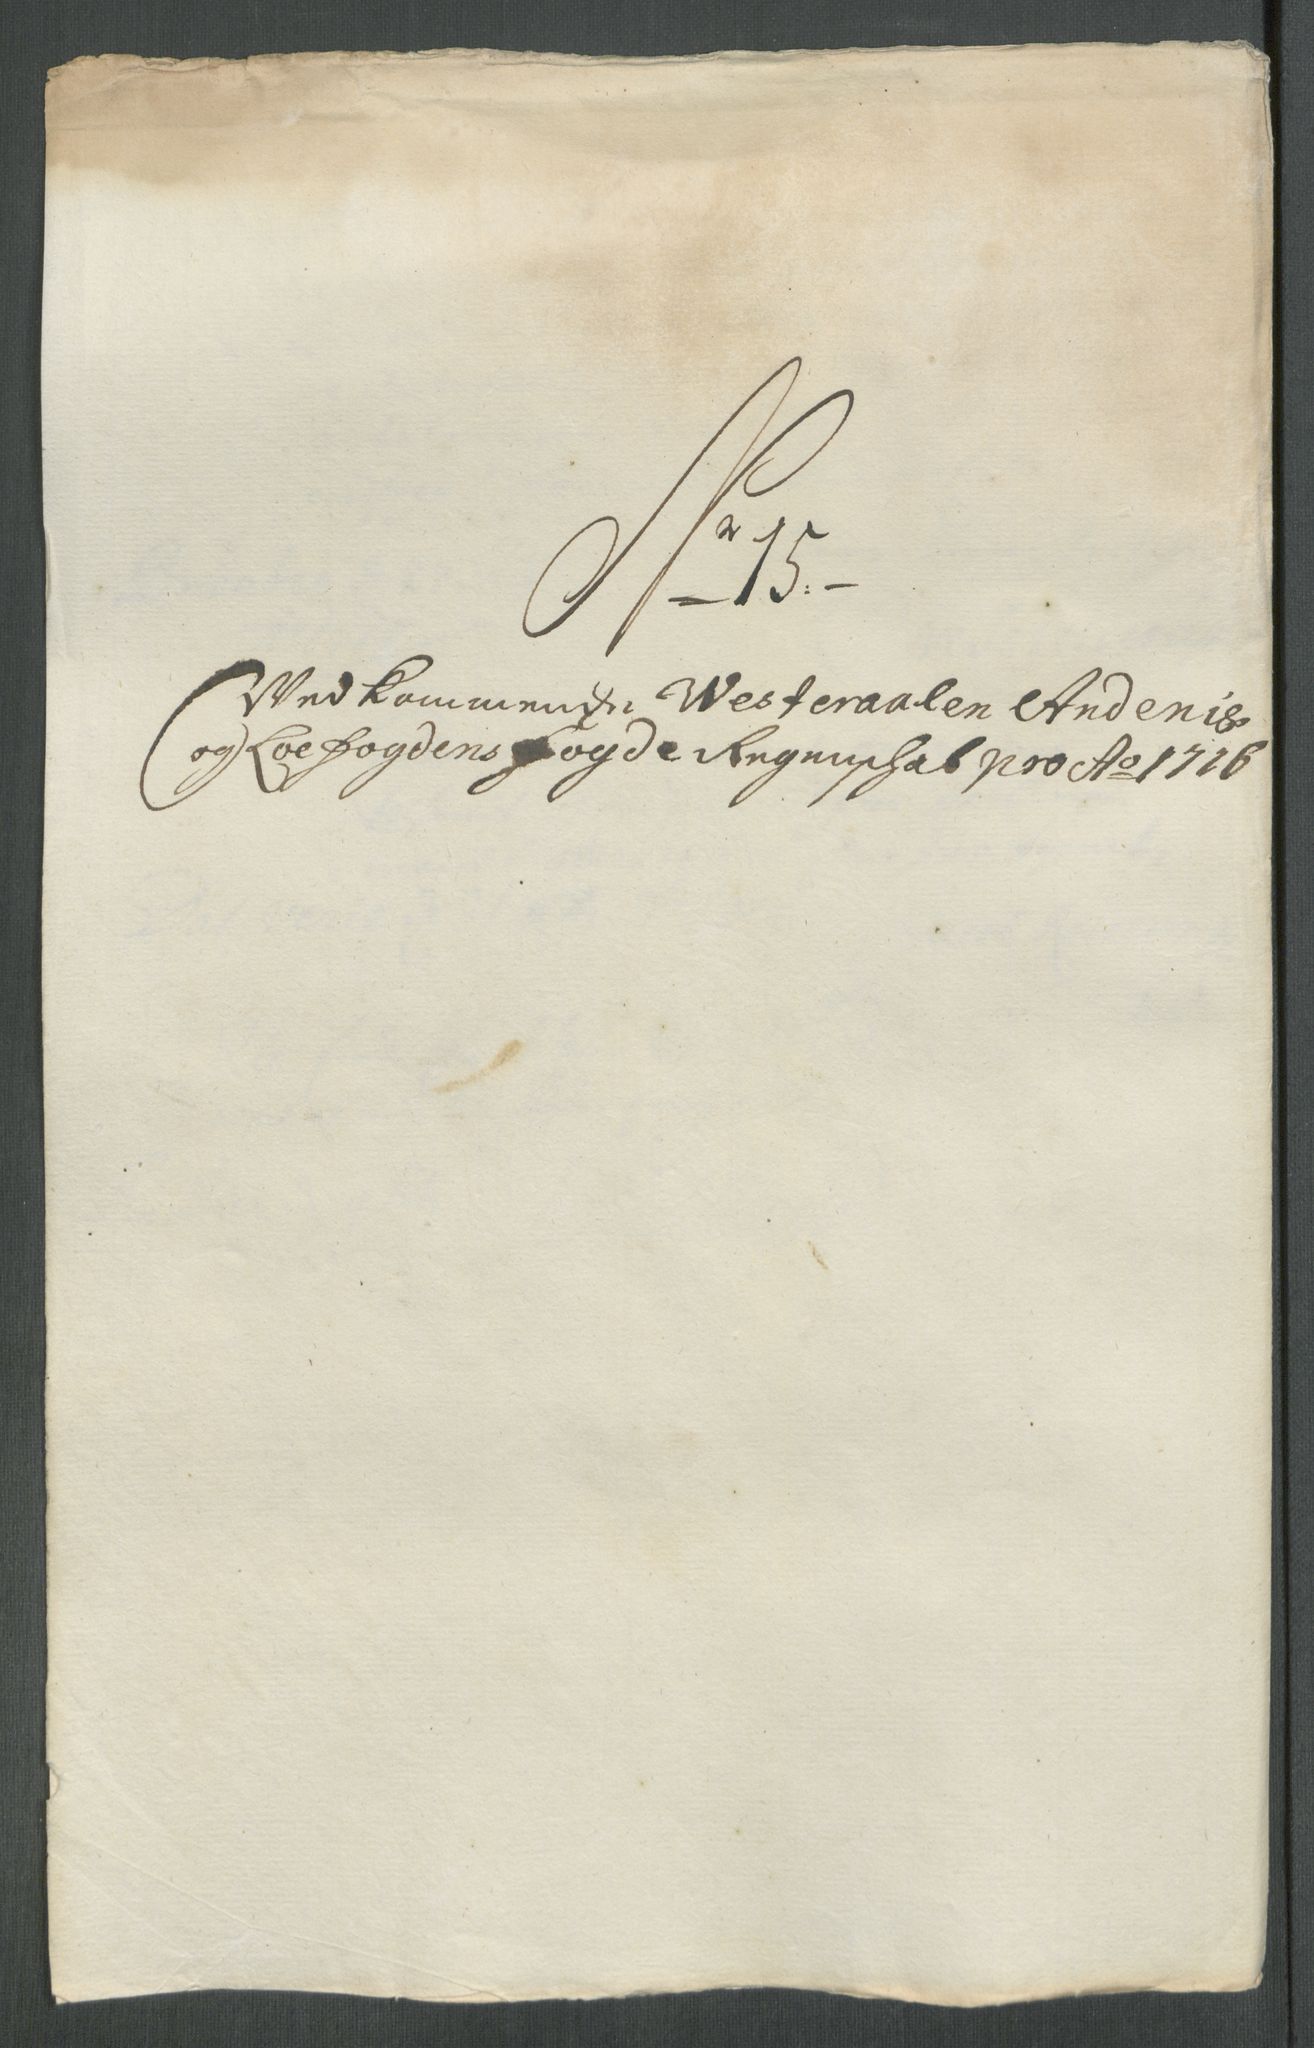 Nr 15:
Vedkommende Westeraalen Andenis
og Loefogdens fogde Regenschab pro Ao 1716